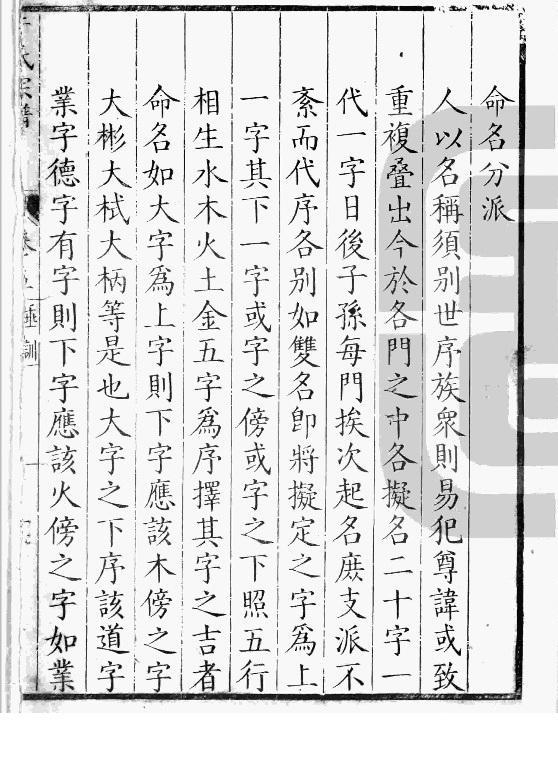 命名分派
人以名稱須别世序族衆則易犯尊諱或致
重複叠出今於各門之中各擬名二十字一
代一字日後子孫每門挨次起名庶支派不
紊而代序各别如雙名卽將擬定之字爲上
一字其下一字或字之傍或字之下照五行
相生水木火土金五字爲序擇其字之吉者
命名如大字爲上字則下字應該木傍之字
大彬大栻大柄等是也大字之下序該道字
業字德字有字則下字應該火傍之字如業
氏宗譜
垂訓